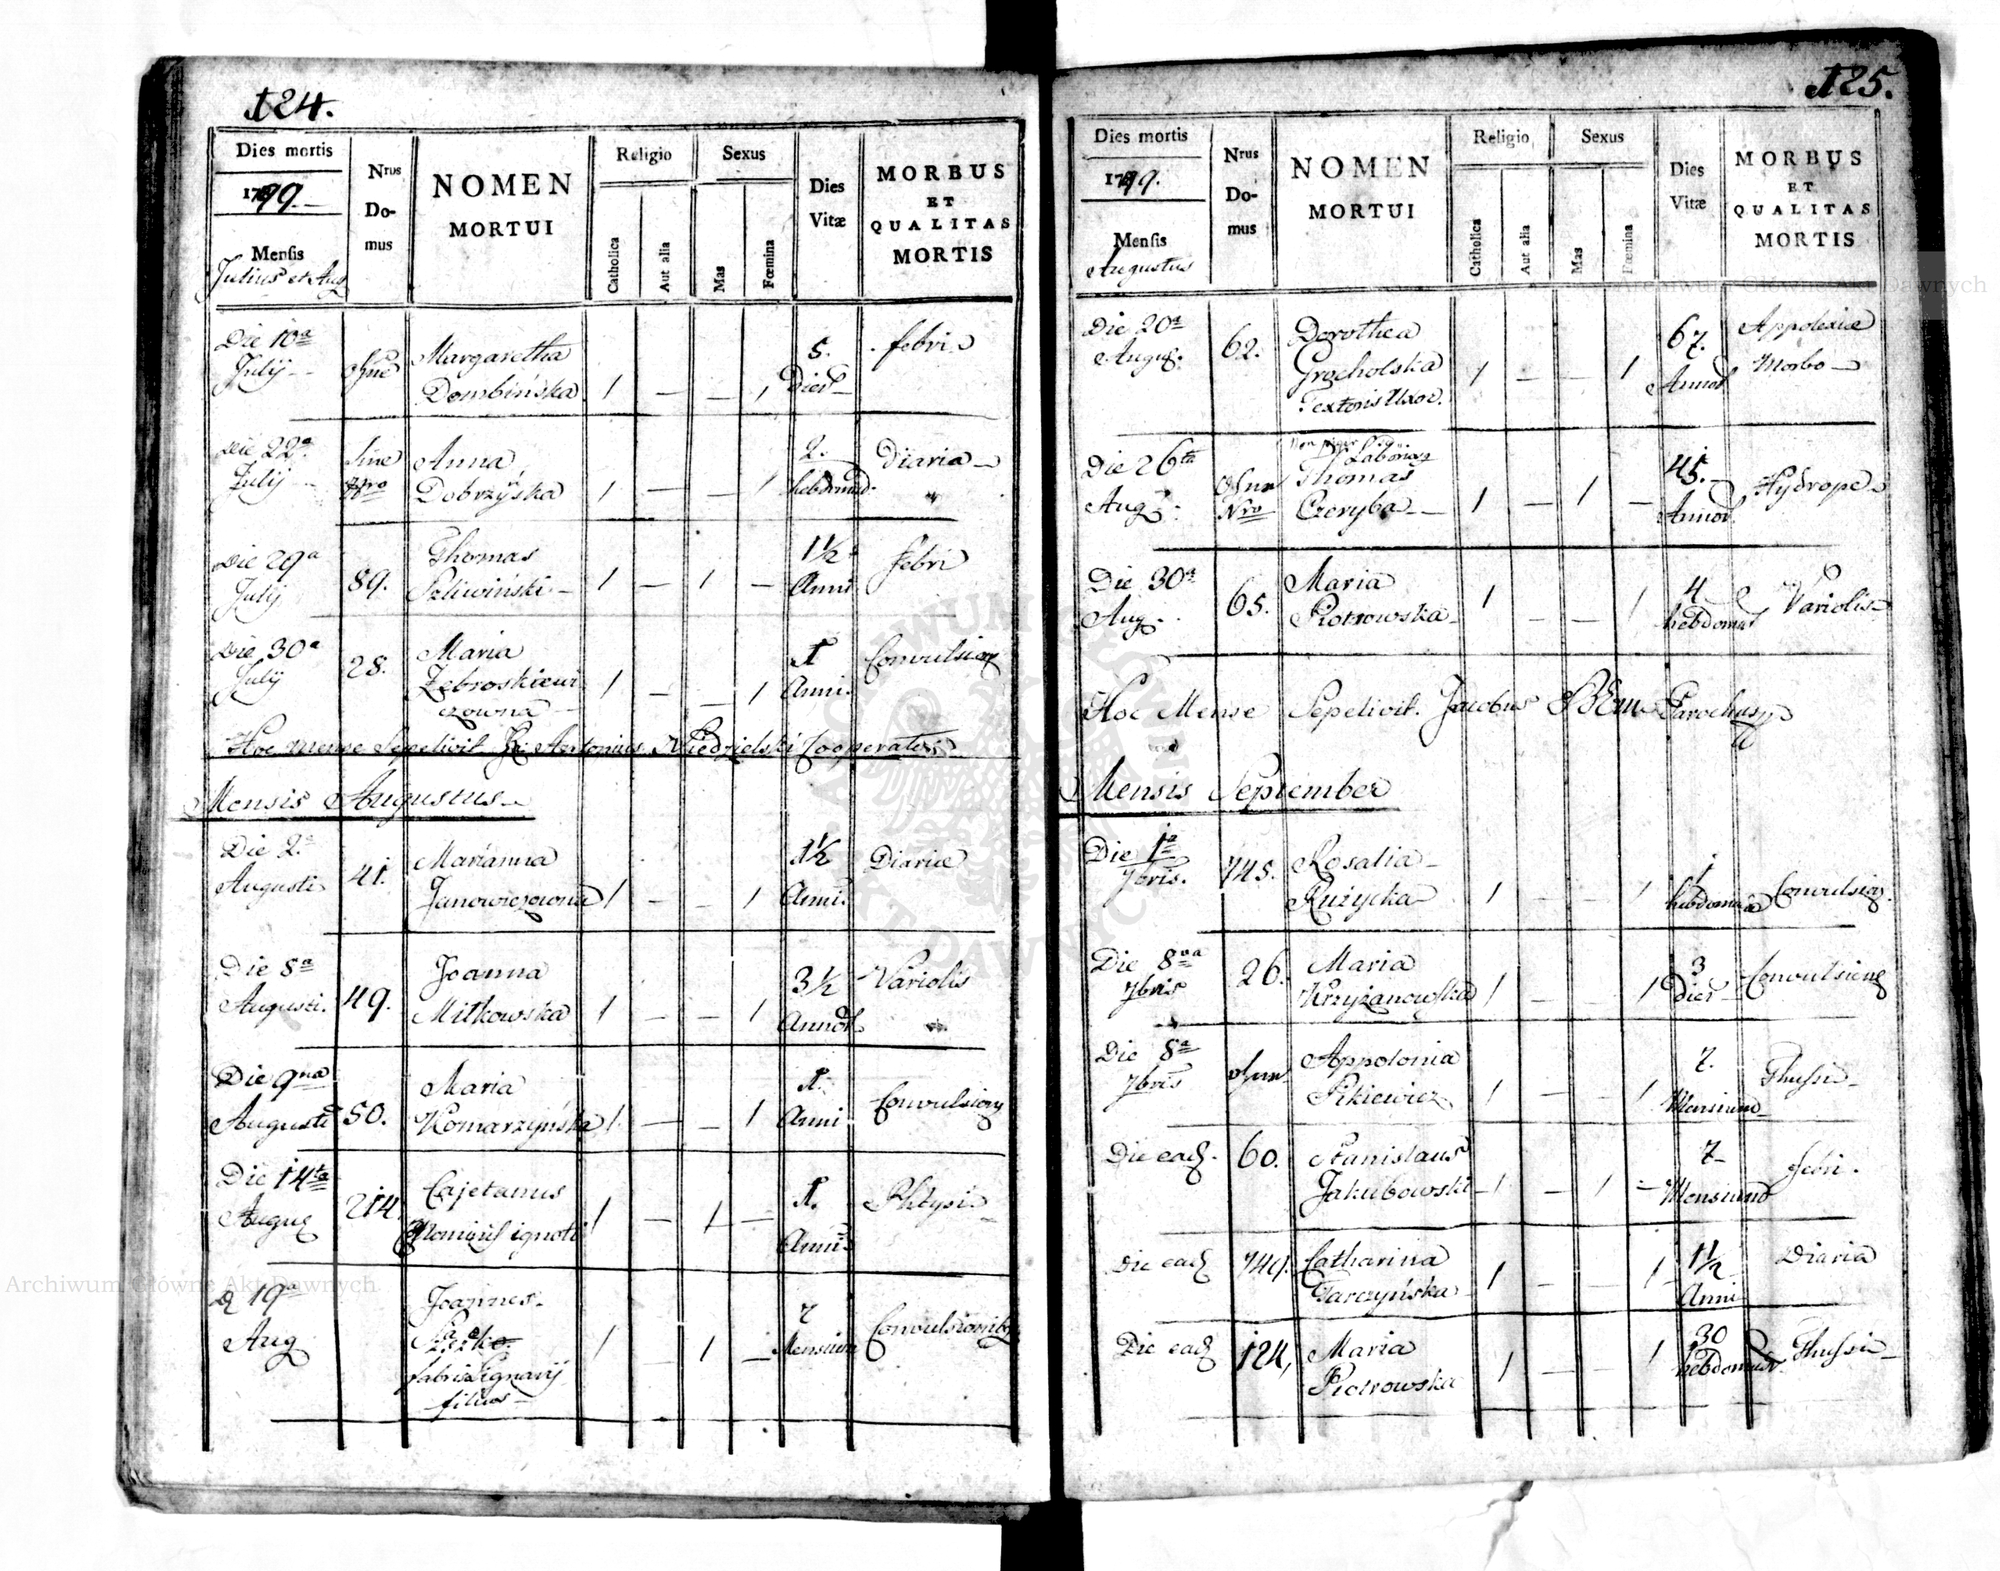 124.
Dies mortis
1799.
Mensis
Julius et Aug
Nrus
Do-
mus
NOMEN
MORTUI
Religio
Catholica
Aut alia
Sexus
Mas
Fœmina
Dies
Vitæ
MORBUS
ET
QUALITAS
MORTIS
Die 10a
Julij
ohne
Margaretha
Dombińska
1 — — 1
5.
Dier
febri
Die 22a
Julij
sine
Nro
Anna
Dobrzyska
1 — — 1
2.
hebdomad.
Diaria
Die 29a
Julij
89.
Thomas
Szliwiński
1 — 1 —
1 1/2
Anni
febri
Die 30a
Julij
28.
Maria
Zebroskiewi
czowna
1 — — 1
1
Anni.
Convulsion
Hoc mense Sepelivit Antonius Niedzielski Cooperator
Mensis Augustus
Die 2a
Augusti
41.
Marianna
Janowiczowna
1 — — 1
1 1/2
Anni.
Diariæ
Die 8a
Augusti.
49.
Joanna
Mitkowska
1 — — 1
3 1/2
Annor
Variolis
Die 9na
Augusti
50.
Maria
Komarzyńska
1 — — 1
1.
Anni
Convulsion
Die 14ta
Augus
214.
Cajetanus
Nominis ignoti
1 — 1 —
1.
Anni
Phtysi
D 19a
Aug
Joannes
fabri Lignarij
filius
1 — 1 —
7
Mensium
Convulsionib
125.
Dies mortis
1799.
Mensis
Augustus
Nrus
Do-
mus
NOMEN
MORTUI
Religio
Catholica
Aut alia
Sexus
Mas
Fœmina
Dies
Vitæ
MORBUS
ET
QUALITAS
MORTIS
Die 20a
Augus.
62.
Dorothea
Grocholska
Textoris Uxor.
1 — — 1
67.
Annor
Appolexiæ
Morbo
Die 26ta
Aug
Nro
Thomas
Czeryba
1 — 1 —
45.
Annor.
Hydrope
Die 30a
Aug.
65.
Maria
Piotrowska
1 — — 1
4
hebdomad
Variolis
Hoc Mense Sepelivit. Jacobus Bem Parochus
Mensis September
Die 1a
7bris.
745.
Rosalia
Ruzycka
1 — — 1
1
hebdomada
Convulsion.
Die 8va
7bris
26.
Maria
Krzyżanowska
1 — — 1
3
Dier
Convulsione
Die 8a
7bris
Appolonia
Pikiewicz
1 — — 1
7.
Mensium
Thussi
Die ead.
60.
Stanislaus
Jakubowski
1 — 1 —
7
Mensium
febri.
Die ead
749.
Catharina
Tarczyńska
1 — — 1
1 1/2
Anni
Diaria
Die ead
124,
Maria
Piotrowska
1 — — 1
30
hebdomad.
Thussi
Archiwum Główne Akt Dawnych
Archiwum Główne Akt Dawnych
ARCHIWUM GŁÓWNE AKT DAWNYCH